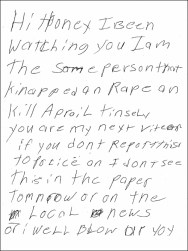 Hi Honey I Been
Watching you I am
the Same person that
kinapped an Rape an
kill Aproil tinsley
you are my next vitem
if you dont Report this
to police an I dont see
this in the paper
Tomorrow or on the
Local news
or i well Blow Up yoy